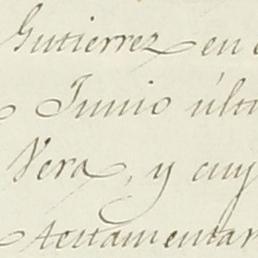 Gutierrez en
Junio últi
Vera, y cuy
Testamentar